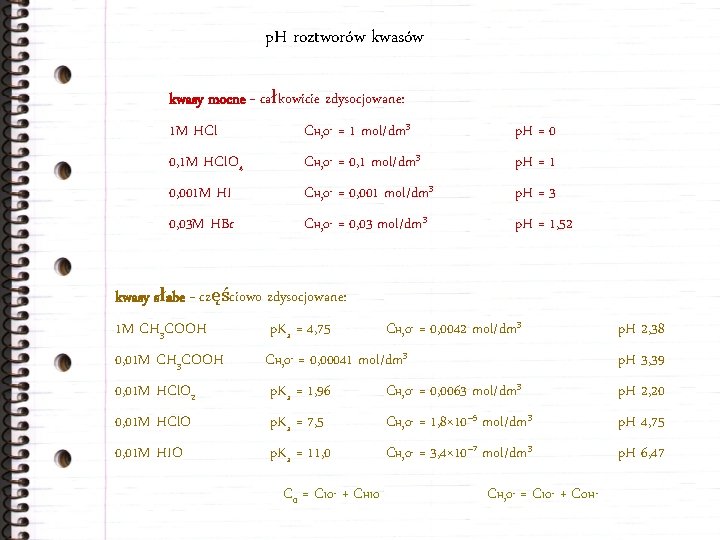 pH roztworów kwasów
kwasy mocne – całkowicie zdysocjowane:
1M HCl CH₃O⁻ = 1 mol/dm³ pH = 0
0,1M HClO₄ CH₃O⁻ = 0,1 mol/dm³ pH = 1
0,001M HJ CH₃O⁻ = 0,001 mol/dm³ pH = 3
0,03M HBr CH₃O⁻ = 0,03 mol/dm³ pH = 1,52
kwasy słabe – częściowo zdysocjowane:
1M CH₃COOH pKₐ = 4,75 CH₃O⁻ = 0,0042 mol/dm³ pH 2,38
0,01M CH₃COOH CH₃O⁻ = 0,00041 mol/dm³ pH 3,39
0,01M HClO₂ pKₐ = 1,96 CH₃O⁻ = 0,0063 mol/dm³ pH 2,20
0,01M HClO pKₐ = 7,5 CH₃O⁻ = 1,8×10⁻⁵ mol/dm³ pH 4,75
0,01M HJO pKₐ = 11,0 CH₃O⁻ = 3,4×10⁻⁷ mol/dm³ pH 6,47
C₀ = CIO⁻ + CHIO CH₃O⁻ = CIO⁻ + COH⁻